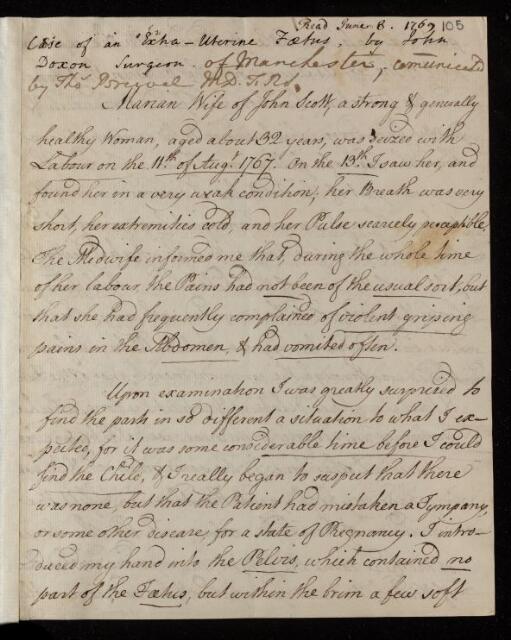 Read June 8. 1769 105
Case of an Extra-Uterine Fœtus, by John
Doxon Surgeon of Manchester, comunicated
by Thos. Percival M.D. F.R.S.
Marian Wife of John Scott, a strong & generally
healthy Woman, aged about 32 years, was seized with
Labour on the 11th of Augt. 1767. On the 13th. I saw her, and
found her in a very weak condition; her Breath was very
short, her extremities cold, and her Pulse scarcely perceptible.
The Midwife informed me that, during the whole time
of her labour the Pains had not been of the usual sort, but
that she had frequently complained of violent griping
pains in the Abdomen, & had vomited often.
Upon examination I was greatly surprized to
find the parts in so different a situation to what I ex-
pected, for it was some considerable time before I could
find the Child, & I really began to suspect that there
was none, but that the Patient had mistaken a Tympany,
or some other disease, for a state of Pregnancy. I intro-
duced my hand into the Pelvis, which contained no
part of the Fœtus, but within the brim a few soft